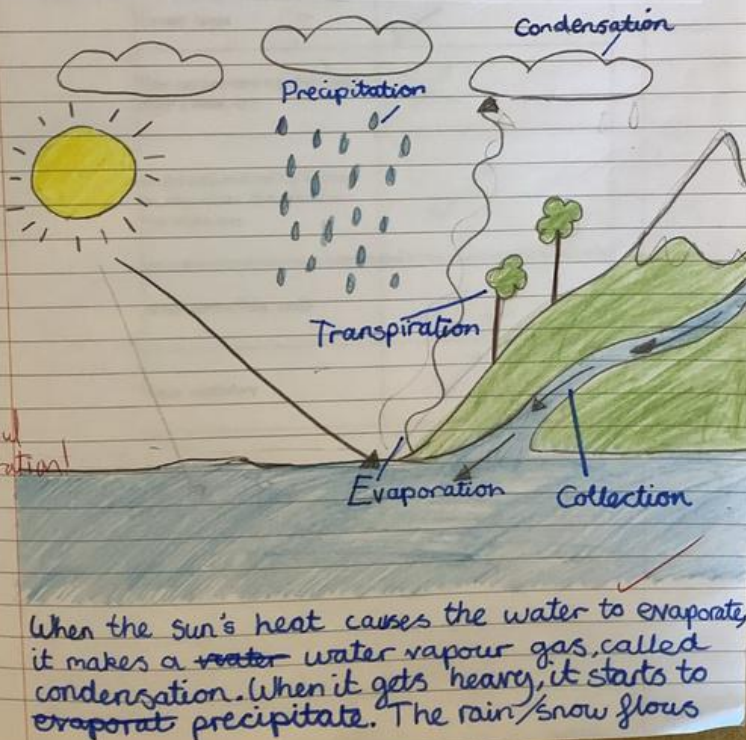 Condensation
Precipitation
Transpiration
Evaporation
Collection
When the sun's heat causes the water to evaporate,
it makes a water water vapour gas, called
condensation. When it gets heavy, it starts to
evaporat precipitate. The rain/snow flows